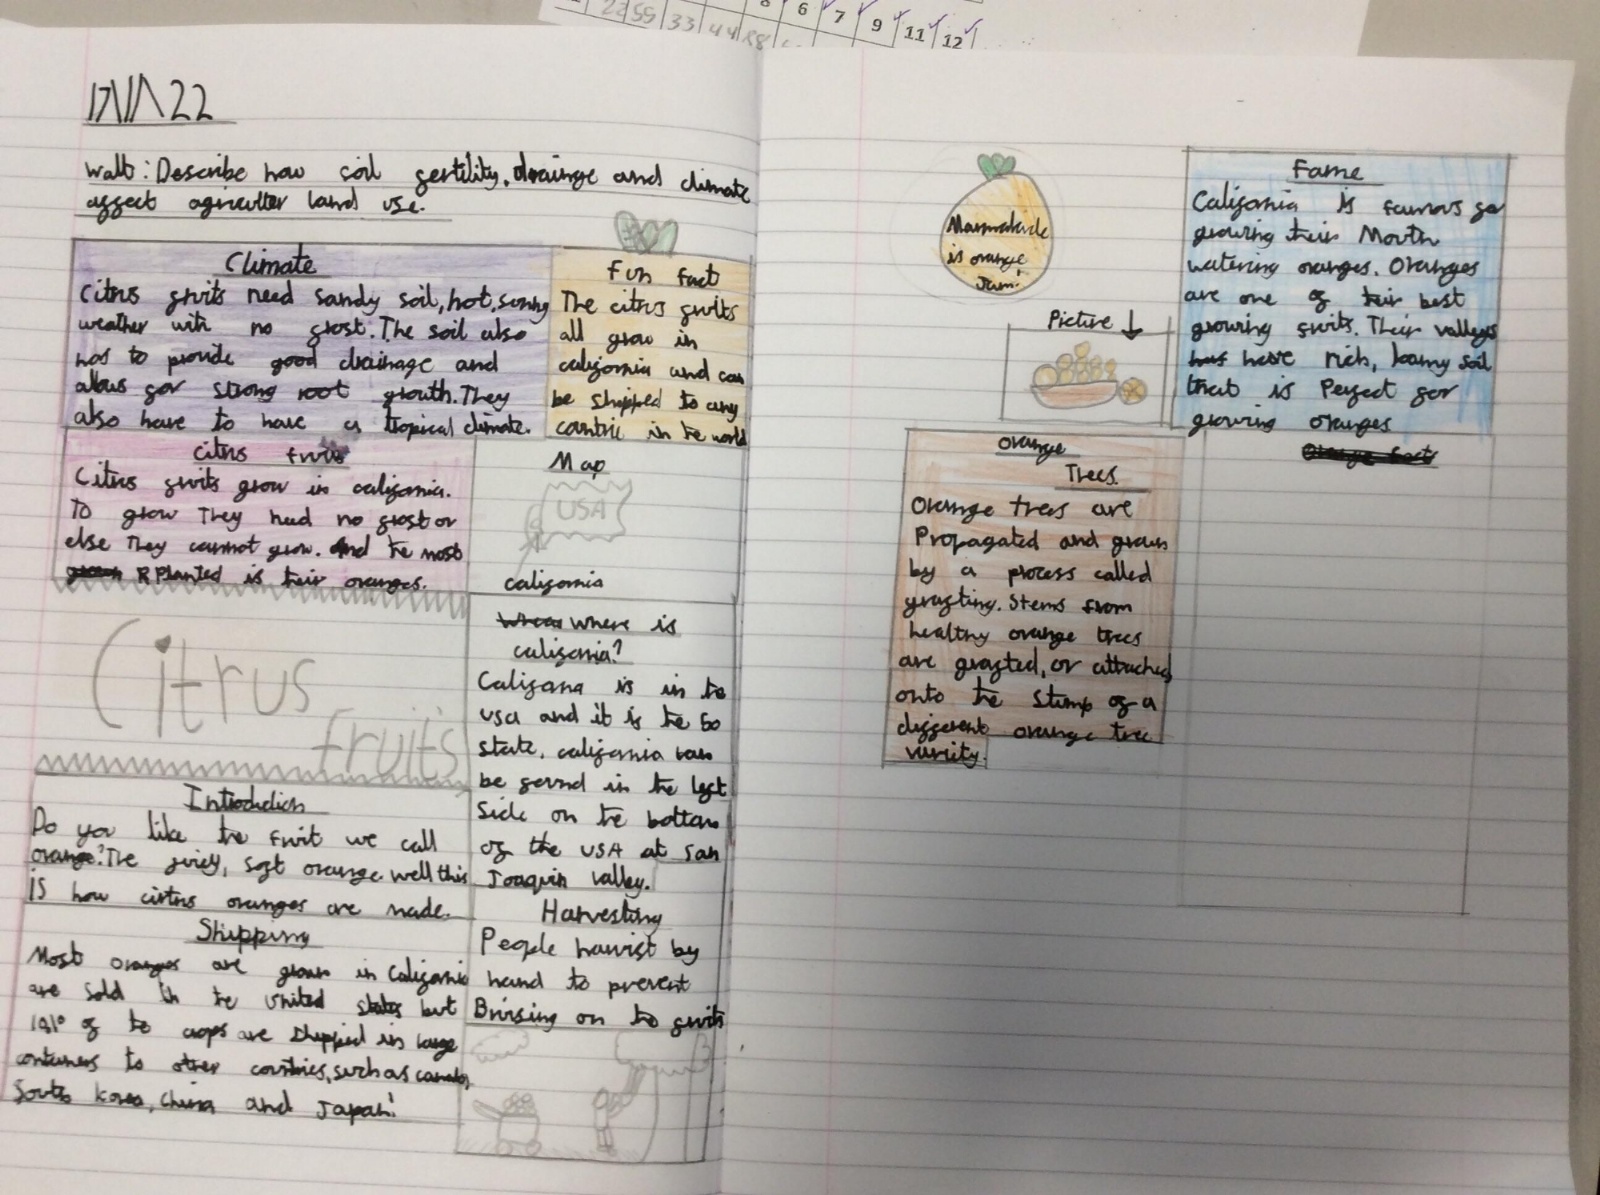 22 55 33 44 88
8 6 7 9 11 12
17/1/22
Walt: Describe how soil fertility, drainge and climate
affect agriculter land use.
Climate
Citrus fruits need sandy soil, hot, sunny
weather with no frost. The soil also
has to provide good drainage and
allows for strong root growth. They
also have to have a tropical climate.
Fun fact
The citrus fruits
all grow in
california and can
be shipped to any
contric in the world
Citrus fruits
Citrus fruits grow in california.
To grow They need no frost or
else They cannot grow. And the most
Planted is their oranges.
Map
USA
california
Citrus
fruits
where is
california?
Califonia is in the
USA and it is the 50
state. california can
be found in the left
side on the bottom
of the USA at San
Joaquin valley.
Introduction
Do you like the fruit we call
orange? The juicy, soft orange well this
is how cirtus oranges are made.
Shipping
Most oranges are grown in California
are sold in the United states but
of the crops are shipped in large
containers to other contries, such as canada,
South Korea, China and Japan!
Harvesting
People harvist by
hand to prevent
Brusing on the fruits
Marmalade
is orange
Jam!
Picture ↓
Fame
California is famous for
growing their Mouth
watering oranges. Oranges
are one of their best
growing fruits. Their valleys
have rich, loamy soil
that is Perfect for
growing oranges
Orange facts
Orange
Trees.
Orange trees are
Propagated and grown
by a process called
grafting. Stems from
healthy orange trees
are grafted, or attached
onto the stump of a
different orange tree
variety.